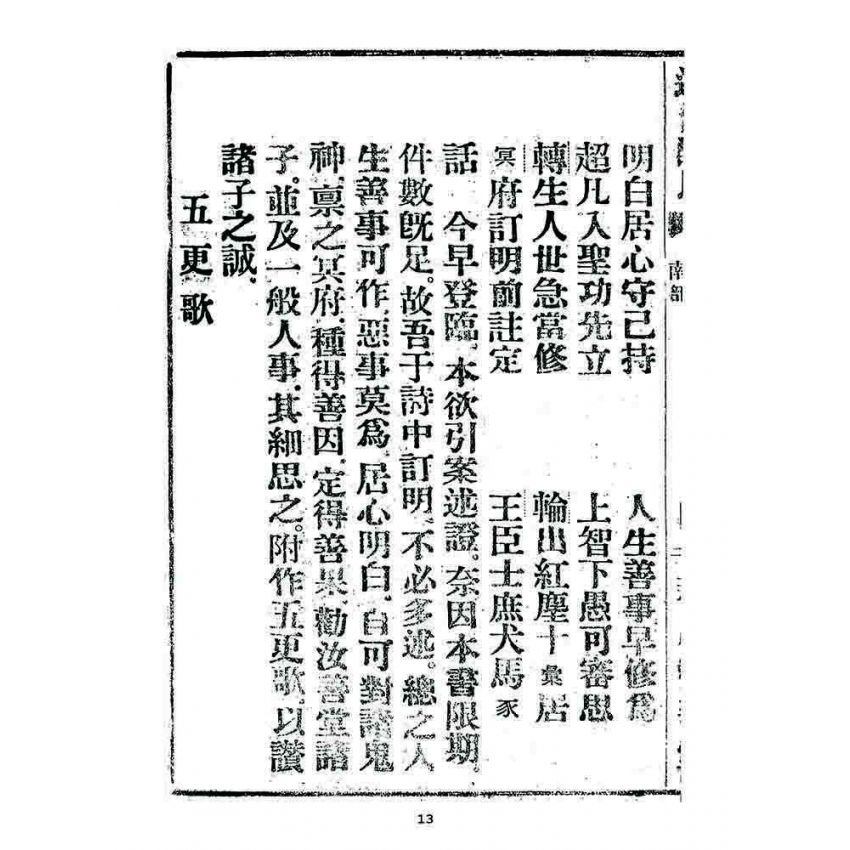 南部
明白居心守己持　人生善事早修為
超凡入聖功先立　上智下愚可審思
轉生人世急當修　輪出紅塵十彙居
冥府訂明前註定　王臣士庶犬馬豕
話　今早登臨．本欲引案述證。奈因本書限期．
件數既足。故吾于詩中訂明．不必多述。總之人
生善事可作．惡事莫為．居心明白．自可對諸鬼
神．稟之冥府．種得善因．定得善果．勸汝善堂諸
子。並及一般人事．其細思之。附作五更歌．以讚
諸子之誠．
五更歌
13